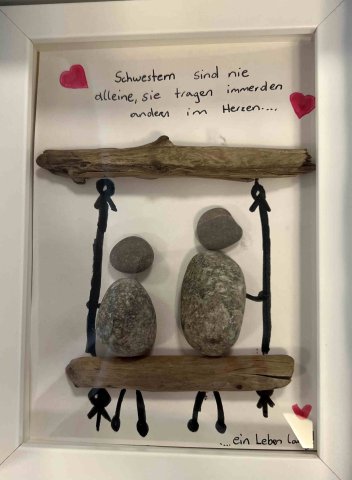 Schwestern sind nie
alleine, sie tragen immerden
andern im Herzen....
....ein Leben